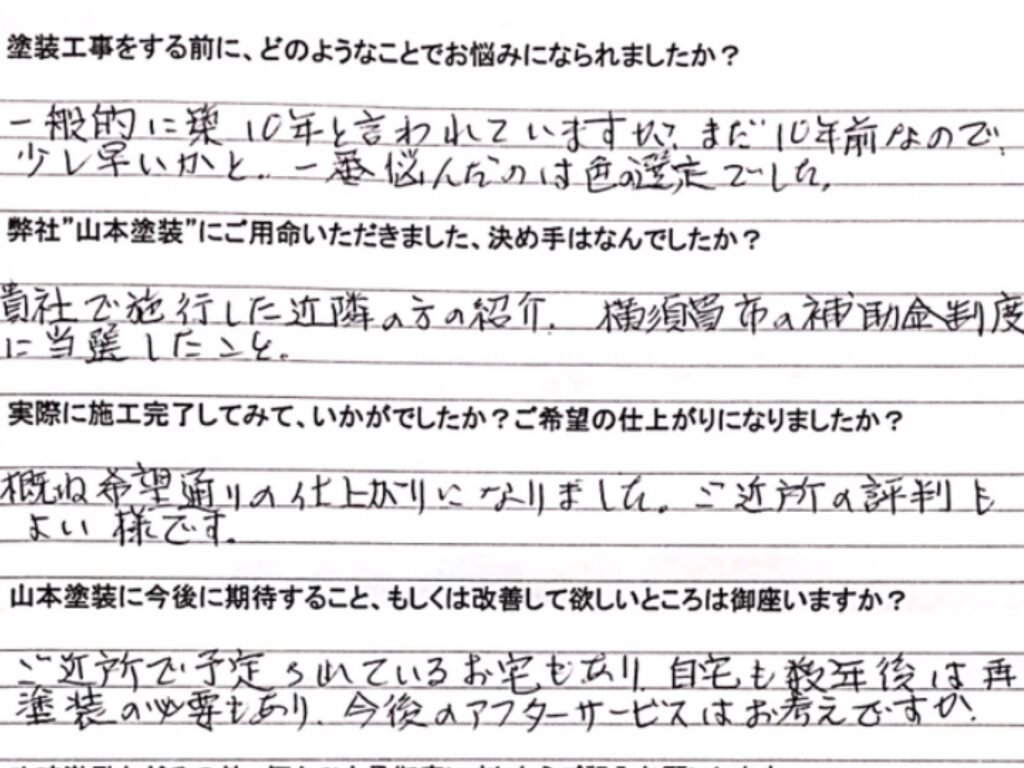 塗装工事をする前に、どのようなことでお悩みになられましたか？
一般的に築10年と言われていますが、まだ10年前なので、
少し早いかと。一番悩んだのは色の選定でした。
弊社”山本塗装”にご用命いただきました、決め手はなんでしたか？
貴社で施行した近隣の方の紹介。横須賀市の補助金制度
に当選したこと。
実際に施工完了してみて、いかがでしたか？ご希望の仕上がりになりましたか？
概ね希望通りの仕上がりになりました。ご近所の評判も
よい様です。
山本塗装に今後に期待すること、もしくは改善して欲しいところは御座いますか？
ご近所で予定されているお宅もあり、自宅も数年後は再
塗装の必要もあり、今後のアフターサービスはお考えですか。